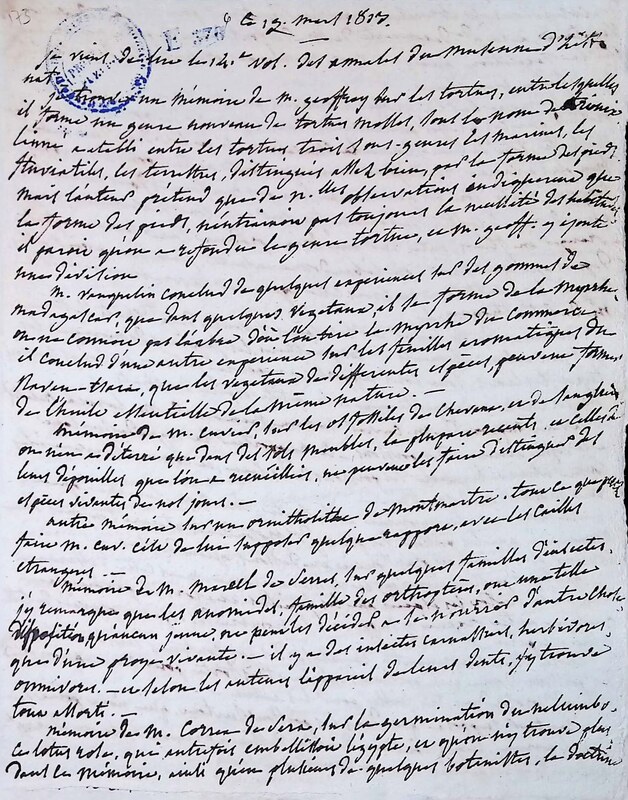 173
E 376
6 Le 19. mars 1813.
Je viens de lire le 14.e vol. des annales du museum d'hist.
nat. une mémoire de m. geoffroy sur les tortues, entre lesquelles
il forme un genre nouveau de tortues molles, sous le nom de trionix
linné a etabli entre les tortues trois sous-genres les marines, les
fluviatiles, les terrestres, distinguées assez bien, par la forme des pieds
mais l'auteur pretend que de n.lles observations indiquent que
la forme des pieds, n'entrainon pas toujours la necessité des habitudes
il paroit qu'on a refondu le genre tortue, et m. geoff. y ajoute
une division
m. vauquelin conclud de quelques experiences sur des gommes de
madagascar, que dans quelques vegetaux, il se forme de la Myrrhe,
on ne connoit pas l'arbre d'où l'on tire la myrrhe du commerce
il conclud d'une autre experience sur les feuilles aromatiques du
Raven-tsara, que les vegetaux de differentes especes, peuvent former
de l'huile essentielle de la même nature. —
mémoire de M. Cuvier, sur les os fossiles de Chevaux, et de sanglier
on n'en a déterré que dans des sols meubles, la plupart recents, et celles de
leurs dépouilles que l'on a recueillies, ne peuvent les faire distinguer des
especes vivantes de nos jours. —
autre mémoire sur un ornitholithe de Montmartre, tout ce que peut
faire M. cuv. c'est de lui supposer quelque rapport, avec les Cailles
etrangeres —
Mémoire de M. Marcel de Serres, sur quelques familles d'insectes.
j'y remarque que les anomides, famille des orthoptères, ont une telle
disposition qu'aucun jeune, ne peut les décider a se nourrir d'autre chose
que d'une proye vivante. — il y a des insectes carnassiers, herbivores,
omnivores. — et selon les auteurs l'appareil de leurs dents, s'y trouve
tout assorti. —
Mémoire de M. Correa de Serra, sur la germination du nelumbo,
ce lotus rose, qui autrefois embellissoit l'égypte, et qu'on n'y trouve plus
dans ce mémoire, ainsi qu'en plusieurs de quelques botanistes, la doctrine